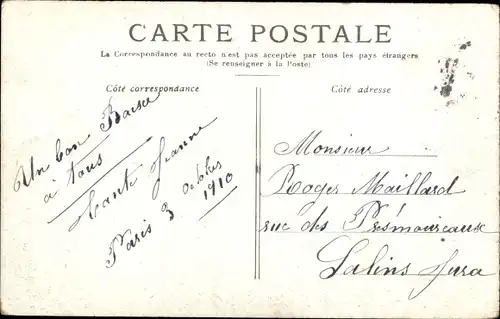 CARTE POSTALE
La Correspondance au recto n'est pas acceptée par tous les pays étrangers
(Se renseigner à la Poste)
Côté correspondance
Côté adresse
Un bon Baiser
à tous
Tante Jeanne
Paris 3 Octobre
1910
Monsieur
Roger Maillard
rue des
Salins Jura